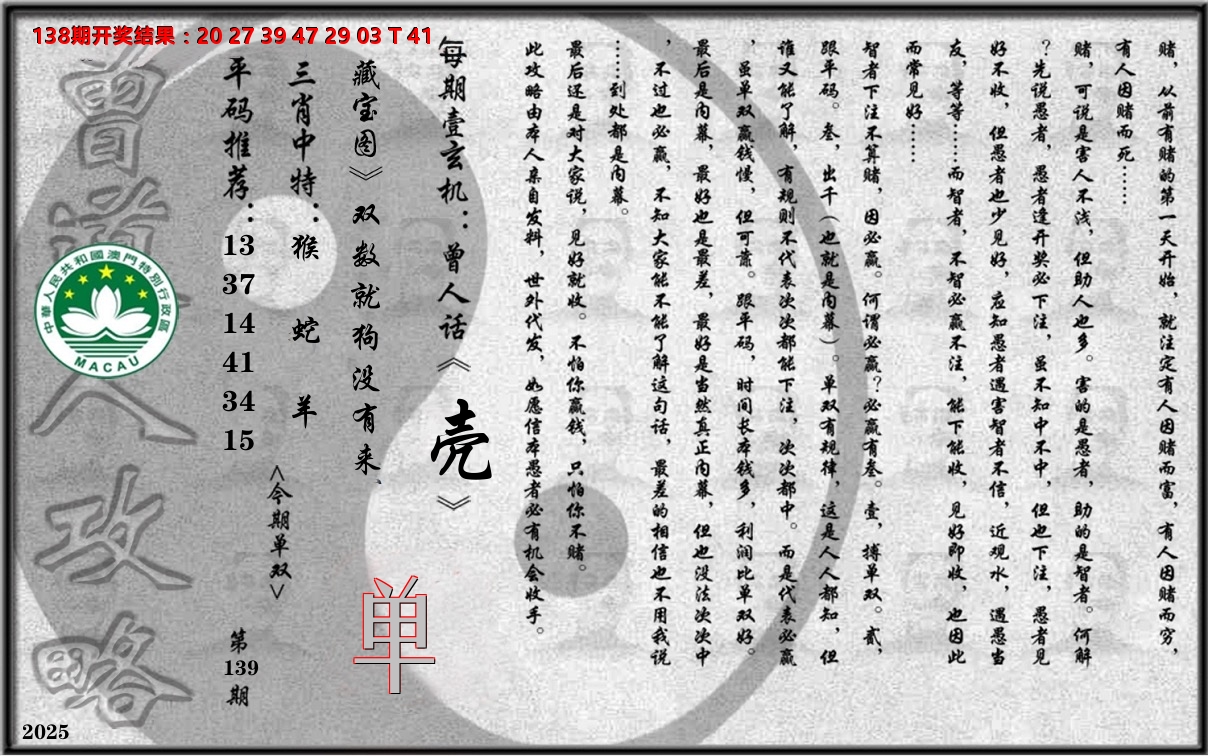 138期开奖结果：20 27 39 47 29 03 T 41
赌，从前有赌的第一天开始，就注定有人因赌而富，有人因赌而穷，
有人因赌而死……
赌，可说是害人不浅，但助人也多。害的是愚者，助的是智者。何解
？先说愚者，愚者逢开奖必下注，虽不知中不中，但也下注，愚者见
好不收，但愚者也少见好，应知愚者遇害智者不信，近观水，遇愚当
友，等等……而智者，不智必赢不注，能下能收，见好即收，也因此
而常见好……
智者下注不算赌，因必赢。何谓必赢？必赢有叁。壹，搏单双。贰，
跟平码。叁，出千（也就是内幕）。单双有规律，这是人人都知，但
谁又能了解，有规则不代表次次都能下注，次次都中。而是代表必赢
，虽单双赢钱慢，但可靠。跟平码，时间长本钱多，利润比单双好。
最后是内幕，最好也是最差，最好是当然真正内幕，但也没法次次中
，不过也必赢，不知大家能不能了解这句话，最差的相信也不用我说
……到处都是内幕。
最后还是对大家说，见好就收。不怕你赢钱，只怕你不赌。
此攻略由本人亲自发料，世外代发，如愿信本愚者必有机会收手。
每期壹玄机：曾人话《壳》
藏宝图》双数就狗没有来、
单
三肖中特：猴 蛇 羊
<今期单双>
平码推荐：13 37 14 41 34 15
第139期
曾道人攻略
中華人民共和國澳門特別行政區
MACAU
2025